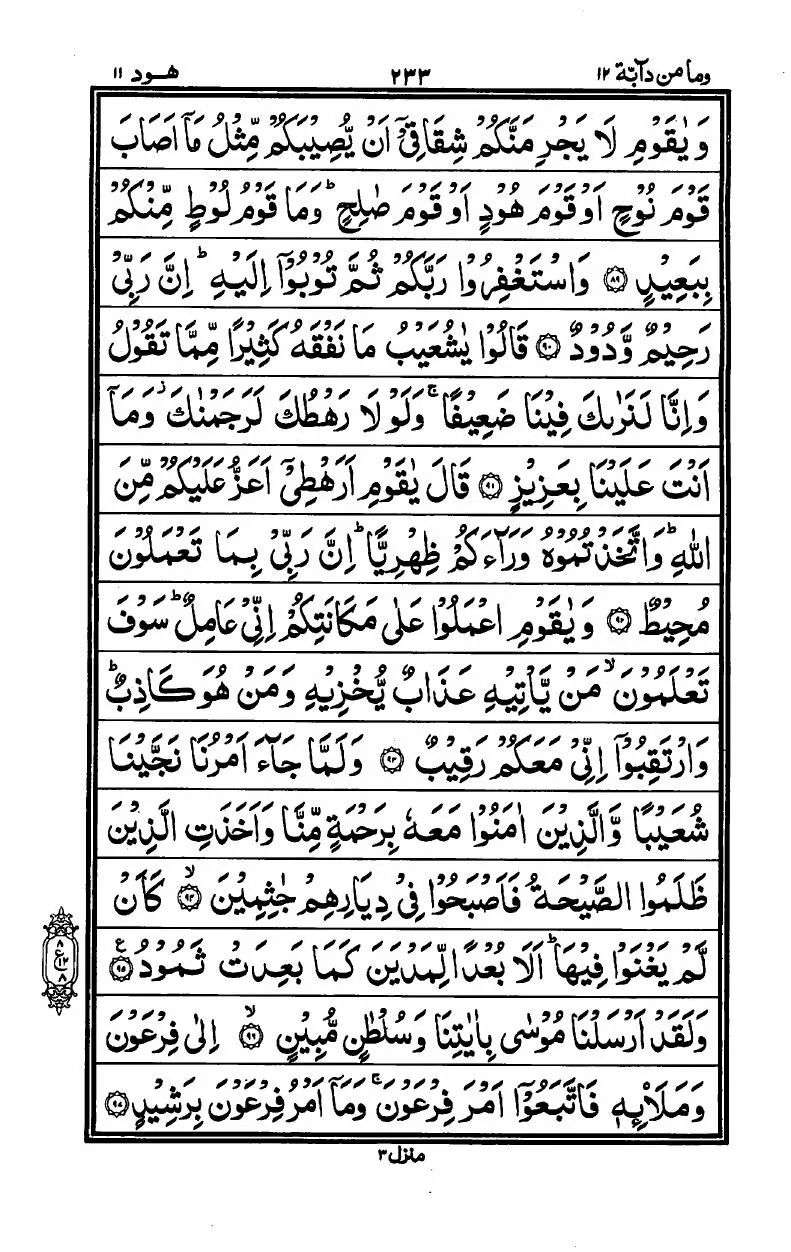 وما من دآبة ١٢ ٢٣٣ هود ١١
وَيٰقَوْمِ لَا يَجْرِمَنَّكُمْ شِقَاقِيْٓ اَنْ يُّصِيْبَكُمْ مِّثْلُ مَآ اَصَابَ
قَوْمَ نُوْحٍ اَوْ قَوْمَ هُوْدٍ اَوْ قَوْمَ صٰلِحٍ ؕ وَمَا قَوْمُ لُوْطٍ مِّنْكُمْ
بِبَعِيْدٍ ۝۸۹ وَاسْتَغْفِرُوْا رَبَّكُمْ ثُمَّ تُوْبُوْٓا اِلَيْهِ ؕ اِنَّ رَبِّيْ
رَحِيْمٌ وَّدُوْدٌ ۝۹۰ قَالُوْا يٰشُعَيْبُ مَا نَفْقَهُ كَثِيْرًا مِّمَّا تَقُوْلُ
وَاِنَّا لَنَرٰىكَ فِيْنَا ضَعِيْفًا ۚ وَلَوْلَا رَهْطُكَ لَرَجَمْنٰكَ ؗ وَمَآ
اَنْتَ عَلَيْنَا بِعَزِيْزٍ ۝۹۱ قَالَ يٰقَوْمِ اَرَهْطِيْٓ اَعَزُّ عَلَيْكُمْ مِّنَ
اللّٰهِ ؕ وَاتَّخَذْتُمُوْهُ وَرَآءَكُمْ ظِهْرِيًّا ؕ اِنَّ رَبِّيْ بِمَا تَعْمَلُوْنَ
مُحِيْطٌ ۝۹۲ وَيٰقَوْمِ اعْمَلُوْا عَلٰى مَكَانَتِكُمْ اِنِّيْ عَامِلٌ ؕ سَوْفَ
تَعْلَمُوْنَ ۙ مَنْ يَّاْتِيْهِ عَذَابٌ يُّخْزِيْهِ وَمَنْ هُوَ كَاذِبٌ ؕ
وَارْتَقِبُوْٓا اِنِّيْ مَعَكُمْ رَقِيْبٌ ۝۹۳ وَلَمَّا جَآءَ اَمْرُنَا نَجَّيْنَا
شُعَيْبًا وَّالَّذِيْنَ اٰمَنُوْا مَعَهٗ بِرَحْمَةٍ مِّنَّا وَاَخَذَتِ الَّذِيْنَ
ظَلَمُوا الصَّيْحَةُ فَاَصْبَحُوْا فِيْ دِيَارِهِمْ جٰثِمِيْنَ ۙ۝۹۴ كَاَنْ
لَّمْ يَغْنَوْا فِيْهَا ؕ اَلَا بُعْدًا لِّمَدْيَنَ كَمَا بَعِدَتْ ثَمُوْدُ ۧ۝۹۵
وَلَقَدْ اَرْسَلْنَا مُوْسٰى بِاٰيٰتِنَا وَسُلْطٰنٍ مُّبِيْنٍ ۙ۝۹۶ اِلٰى فِرْعَوْنَ
وَمَلَاْئِهٖ فَاتَّبَعُوْٓا اَمْرَ فِرْعَوْنَ ۚ وَمَآ اَمْرُ فِرْعَوْنَ بِرَشِيْدٍ ۝۹۷
۸ ع ۱۲ ۸
منزل ۳